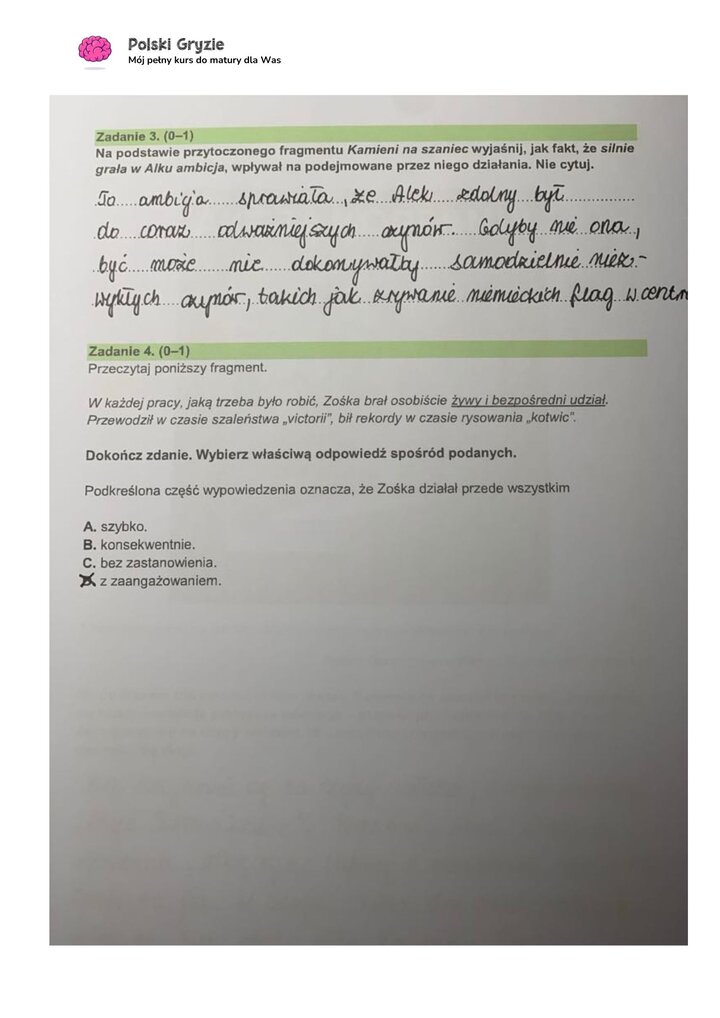 Polski Gryzie
Mój pełny kurs do matury dla Was
Zadanie 3. (0–1)
Na podstawie przytoczonego fragmentu Kamieni na szaniec wyjaśnij, jak fakt, że silnie
grała w Alku ambicja, wpływał na podejmowane przez niego działania. Nie cytuj.
Ta ambicja sprawiała, że Alek zdolny był
do coraz odważniejszych czynów. Gdyby nie ona,
być może nie dokonywałby samodzielnie niez-
wykłych czynów, takich jak zrywanie niemieckich flag w centr
Zadanie 4. (0–1)
Przeczytaj poniższy fragment.
W każdej pracy, jaką trzeba było robić, Zośka brał osobiście żywy i bezpośredni udział.
Przewodził w czasie szaleństwa „victorii”, bił rekordy w czasie rysowania „kotwic”.
Dokończ zdanie. Wybierz właściwą odpowiedź spośród podanych.
Podkreślona część wypowiedzenia oznacza, że Zośka działał przede wszystkim
A. szybko.
B. konsekwentnie.
C. bez zastanowienia.
D. z zaangażowaniem.